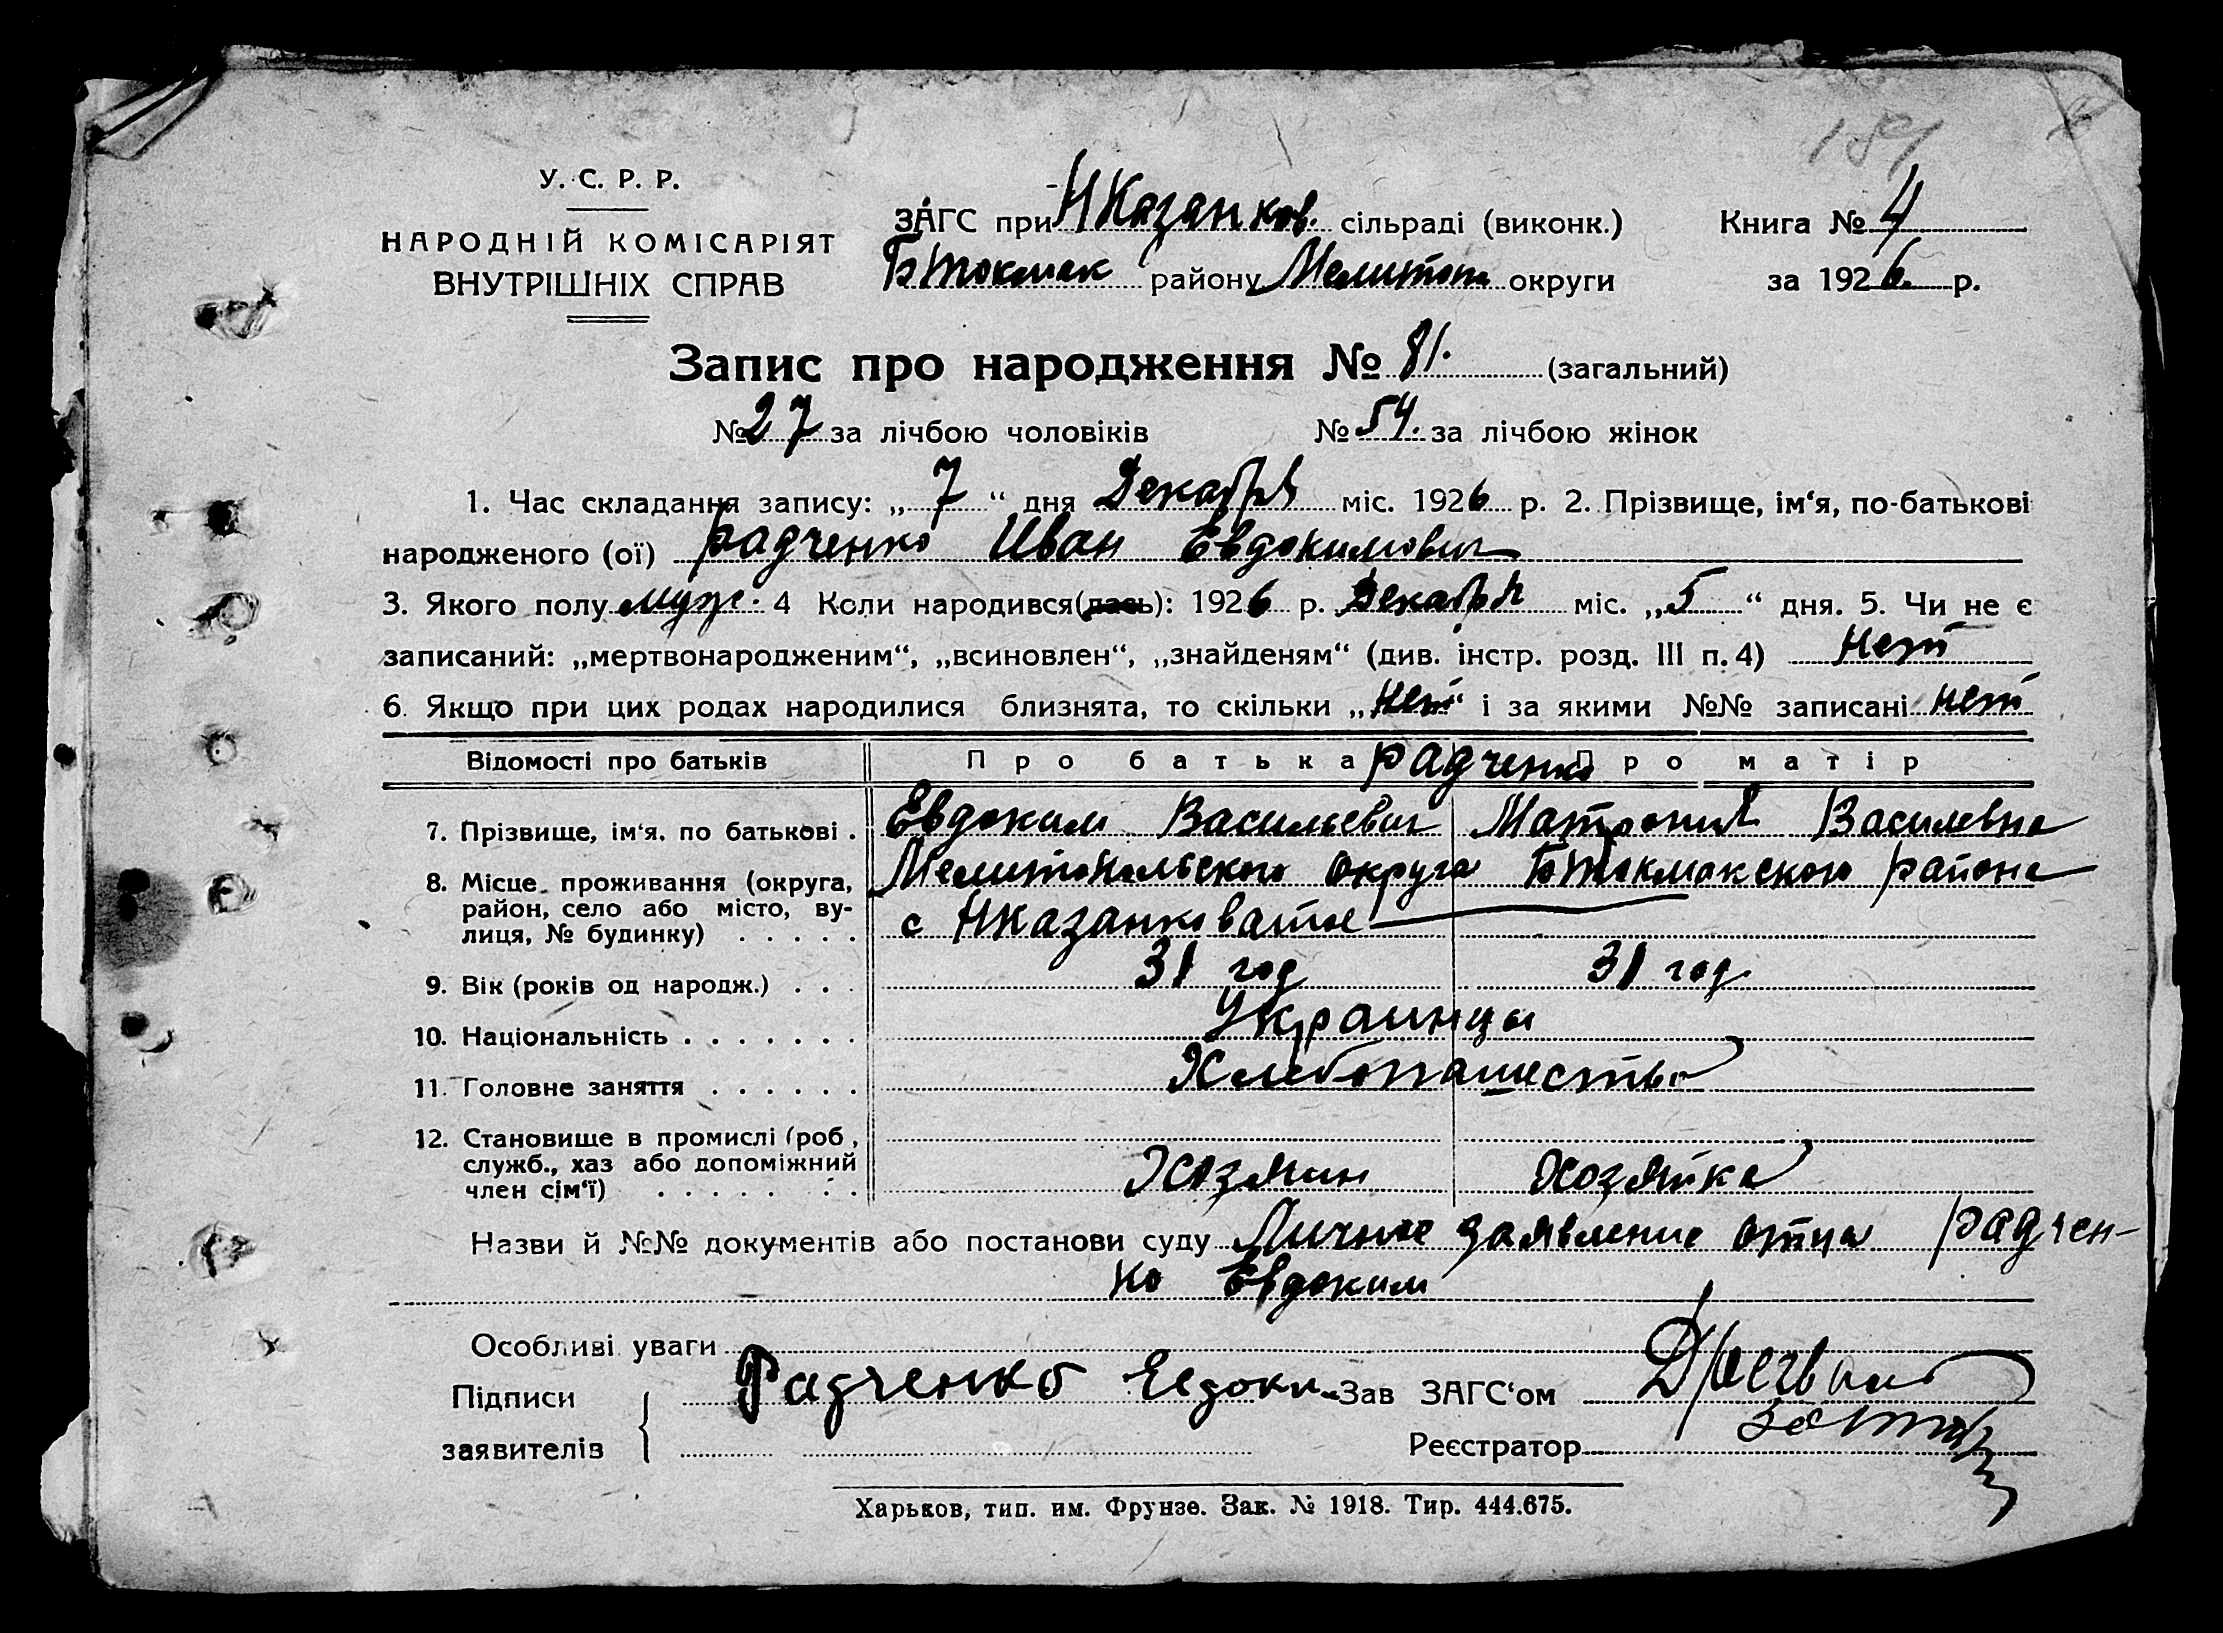 181
У. С. Р. Р.
НАРОДНІЙ КОМІСАРІЯТ
ВНУТРІШНІХ СПРАВ
ЗАГС при НКазанков. сільраді (виконк.)
БТокмак району Мелитоп округи
Книга № 4
за 1926 р.
Запис про народження № 81. (загальний)
№ 27 за лічбою чоловіків № 54. за лічбою жінок
1. Час складання запису: „ 7 “ дня Декабря міс. 1926 р. 2. Прізвище, ім‘я, по-батькові
народженого (ої) Радченко Иван Евдокимович
3. Якого полу муж. 4 Коли народився(лась): 1926 р. Декабря міс. „ 5 “ дня. 5. Чи не є
записаний: „мертвонародженим“, „всиновлен“, „знайденям“ (див. інстр. розд. III п. 4) нет
6. Якщо при цих родах народилися близнята, то скільки „нет“ і за якими №№ записані нет
Відомості про батьків Про батька Радченко Про матір
7. Прізвище, ім‘я, по батькові . Евдоким Васильевич Матрония Василевна
8. Місце проживання (округа, Мелитопольского округа БТокмакского района
район, село або місто, ву- с НКазанковатое
лиця, № будинку) . . . . .
9. Вік (років од народж.) . . . 31 год 31 год
10. Національність . . . . . . . Украинцы
11. Головне заняття . . . . . . Хлебопашество
12. Становище в промислі (роб ,
служб., хаз або допоміжний Хозяин Хозяйка
член сім‘ї) . . . . . . .
Назви й №№ документів або постанови суду Личное заявление отца Радчен-
ко Евдоким
Особливі уваги
Підписи Радченко Евдоки Зав ЗАГС‘ом
заявителів Реєстратор
Харьков, тип. им. Фрунзе. Зак. № 1918. Тир. 444.675.